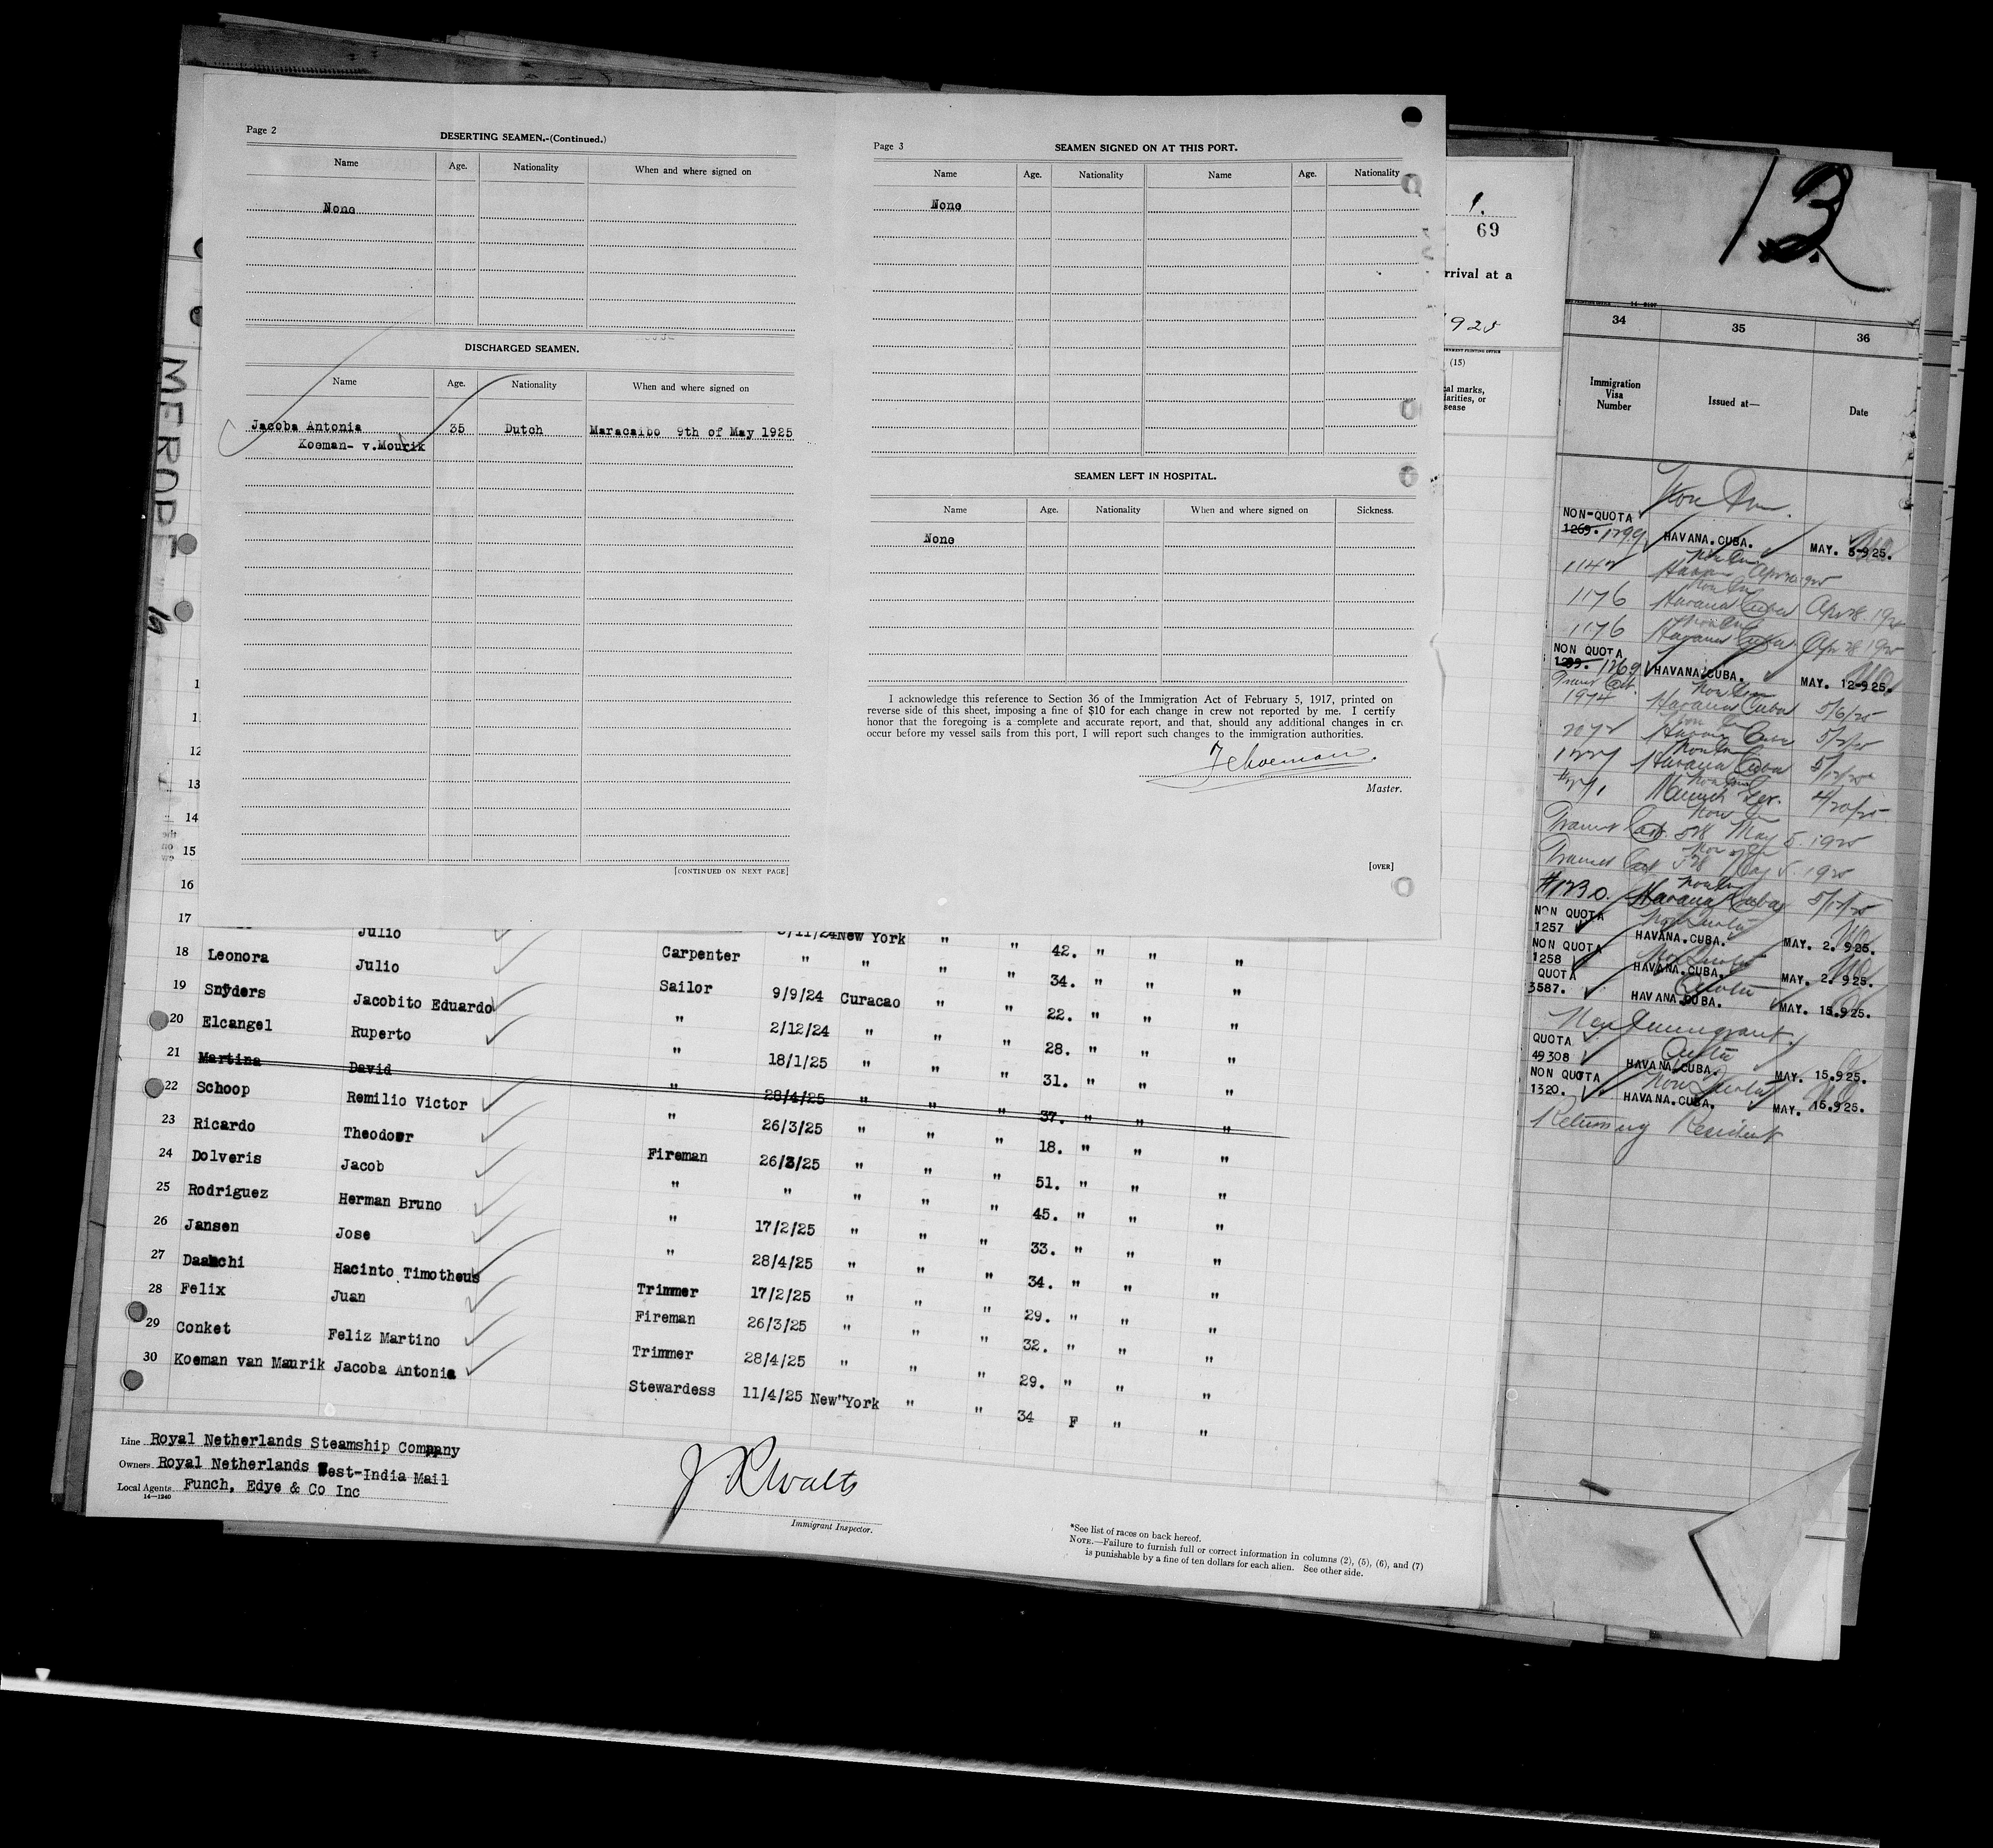 Page 2
DESERTING SEAMEN.-(Continued.)
Name Age. Nationality When and where signed on
None
DISCHARGED SEAMEN.
Name Age. Nationality When and where signed on
Jacoba Antonia 35 Dutch Maracaibo 9th of May 1925
Koeman- v.Mourik
[CONTINUED ON NEXT PAGE]
Page 3
SEAMEN SIGNED ON AT THIS PORT.
Name Age. Nationality Name Age. Nationality
None
SEAMEN LEFT IN HOSPITAL.
Name Age. Nationality When and where signed on Sickness.
None
I acknowledge this reference to Section 36 of the Immigration Act of February 5, 1917, printed on
reverse side of this sheet, imposing a fine of $10 for each change in crew not reported by me. I certify
honor that the foregoing is a complete and accurate report, and that, should any additional changes in cr
occur before my vessel sails from this port, I will report such changes to the immigration authorities.
Master.
[OVER]
MEROPE
1.
69
rrival at a
1925
(15)
al marks,
larities, or
sease
13
34 35 36
Immigration Visa Number Issued at— Date
NON-QUOTA
1269. 1299 HAVANA.CUBA. MAY. 5-925.
1142
1176 Havana Cuba Apr 28. 1925
1176 Havana Cuba Apr 28 1925
NON QUOTA
1269 HAVANA.CUBA. MAY. 12-925.
1974 Havana Cuba 5/6/25
Havana Cuba
Havana Cuba 5/12/25
Munich Ger. 4/20/25
Transit Cert. 528 May 5. 1925
Transit Cert 528 May 5. 1925
#1230. Havana Cuba 5/12/25
NON QUOTA
1257 HAVANA.CUBA. MAY. 2. 925.
NON QUOTA
1258 HAVANA.CUBA. MAY. 2. 925.
QUOTA
3587. HAVANA.CUBA. MAY. 15.925.
Non Immigrant.
QUOTA
49308 HAVANA.CUBA. MAY. 15.925.
NON QUOTA
1320. HAVANA.CUBA. MAY. 15.925.
Returning Resident
12
13
14
15
16
17 Julio New York " " 42. " " "
18 Leonora Julio Carpenter " " " " 34. " " "
19 Snyders Jacobito Eduardo Sailor 9/9/24 Curacao " " 22. " " "
20 Elcangel Ruperto " 2/12/24 " " " 28. " " "
21 Martina David " 18/1/25 " " " 31. " " "
22 Schoop Remilio Victor " 28/4/25 " " " 37. " " "
23 Ricardo Theodoor " 26/3/25 " " " 18. " " "
24 Dolveris Jacob Fireman 26/3/25 " " " 51. " " "
25 Rodriguez Herman Bruno " " " " " 45. " " "
26 Jansen Jose " 17/2/25 " " " 33. " " "
27 Daamchi Hacinto Timotheus " 28/4/25 " " " 34. " " "
28 Felix Juan Trimmer 17/2/25 " " " 29. " " "
29 Conket Feliz Martino Fireman 26/3/25 " " " 32. " " "
Trimmer 28/4/25 " " " 29. " " "
30 Koeman van Maurik Jacoba Antonia Stewardess 11/4/25 New"York " " 34 F " "
Line Royal Netherlands Steamship Company
Owners Royal Netherlands West-India Mail
Local Agents Funch, Edye & Co Inc
14—1240
Immigrant Inspector.
*See list of races on back hereof.
NOTE.—Failure to furnish full or correct information in columns (2), (5), (6), and (7)
is punishable by a fine of ten dollars for each alien. See other side.